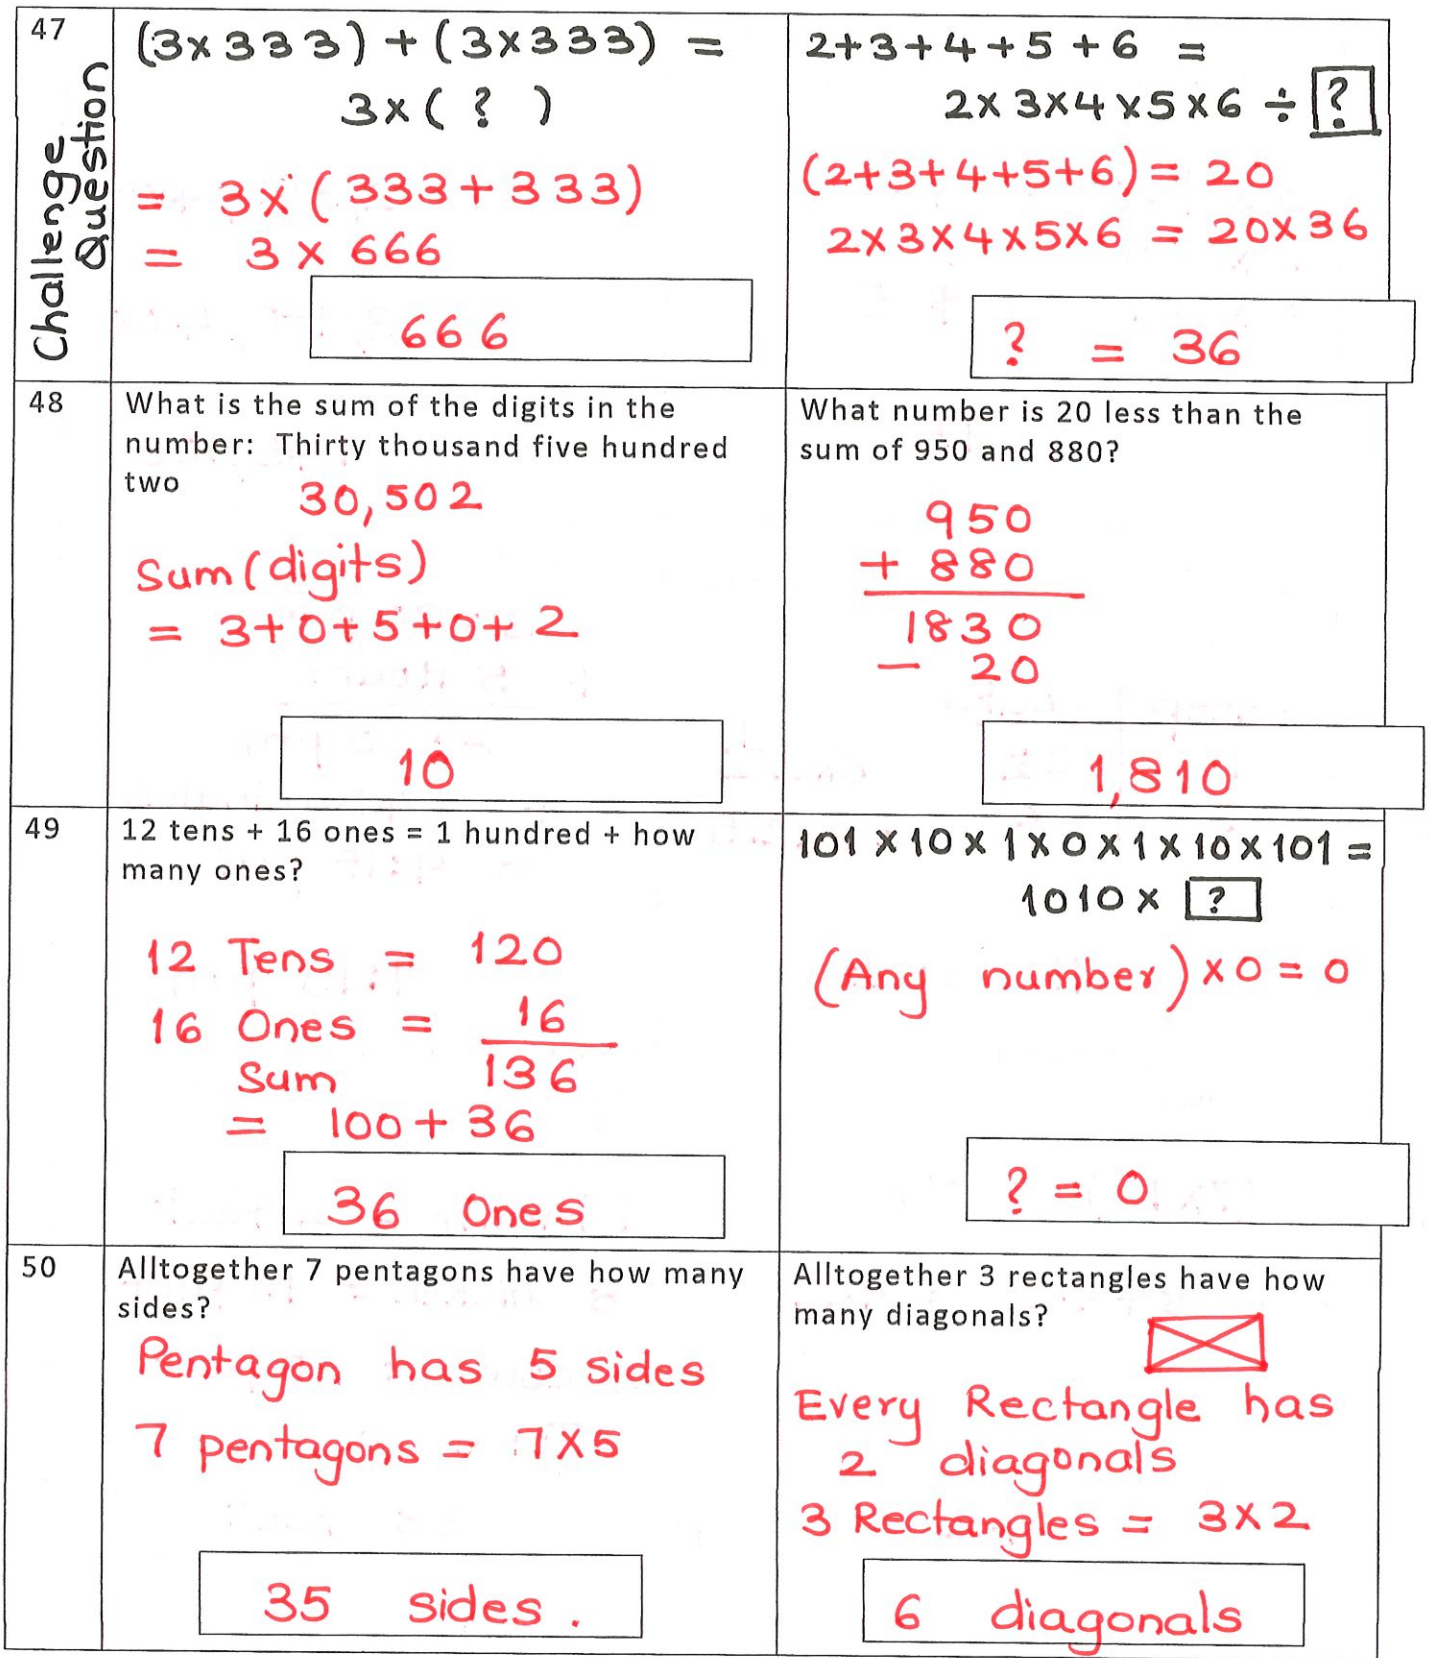 47
Challenge
Question
(3×333) + (3×333) =
3×( ? )
= 3×(333+333)
= 3 × 666
666
2+3+4+5+6 =
2×3×4×5×6 ÷ ?
(2+3+4+5+6) = 20
2×3×4×5×6 = 20×36
? = 36
48
What is the sum of the digits in the
number: Thirty thousand five hundred
two
30,502
Sum(digits)
= 3+0+5+0+2
10
What number is 20 less than the
sum of 950 and 880?
950
+ 880
1830
− 20
1,810
49
12 tens + 16 ones = 1 hundred + how
many ones?
12 Tens = 120
16 Ones = 16
Sum 136
= 100 + 36
36 Ones
101 × 10 × 1 × 0 × 1 × 10 × 101 =
1010 × ?
(Any number) × 0 = 0
? = 0
50
Alltogether 7 pentagons have how many
sides?
Pentagon has 5 sides
7 pentagons = 7×5
35 sides.
Alltogether 3 rectangles have how
many diagonals?
Every Rectangle has
2 diagonals
3 Rectangles = 3×2
6 diagonals